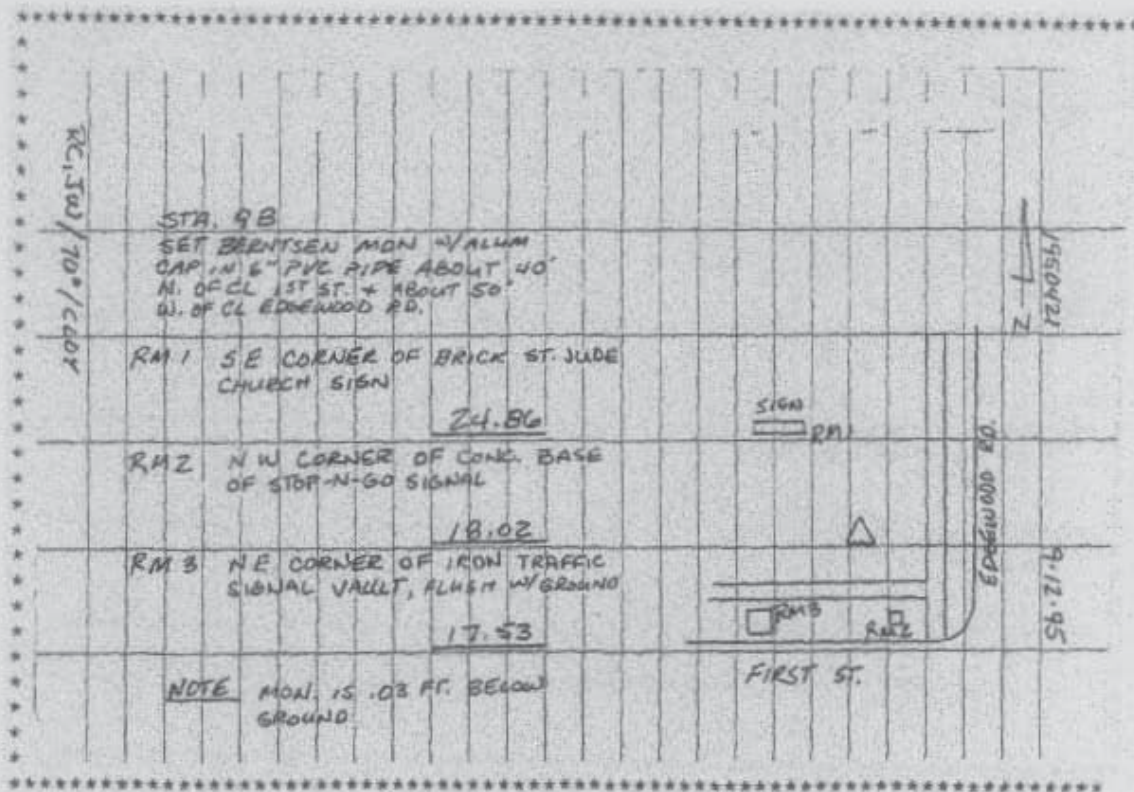 STA. 9B
SET BERNTSEN MON W/ALUM
CAP IN 6" PVC PIPE ABOUT 40'
N. OF CL 1ST ST. + ABOUT 50'
W. OF CL EDGEWOOD RD.
RM 1 SE CORNER OF BRICK ST. JUDE
CHURCH SIGN
24.86
RM2 NW CORNER OF CONC. BASE
OF STOP-N-GO SIGNAL
18.02
RM 3 NE CORNER OF IRON TRAFFIC
SIGNAL VAULT, FLUSH W/GROUND
17.53
NOTE MON. IS .03 FT. BELOW
GROUND
SIGN
RM1
RM3
RM2
FIRST ST.
EDGEWOOD RD.
N
1950421
9-12-95
/70°/CLDY